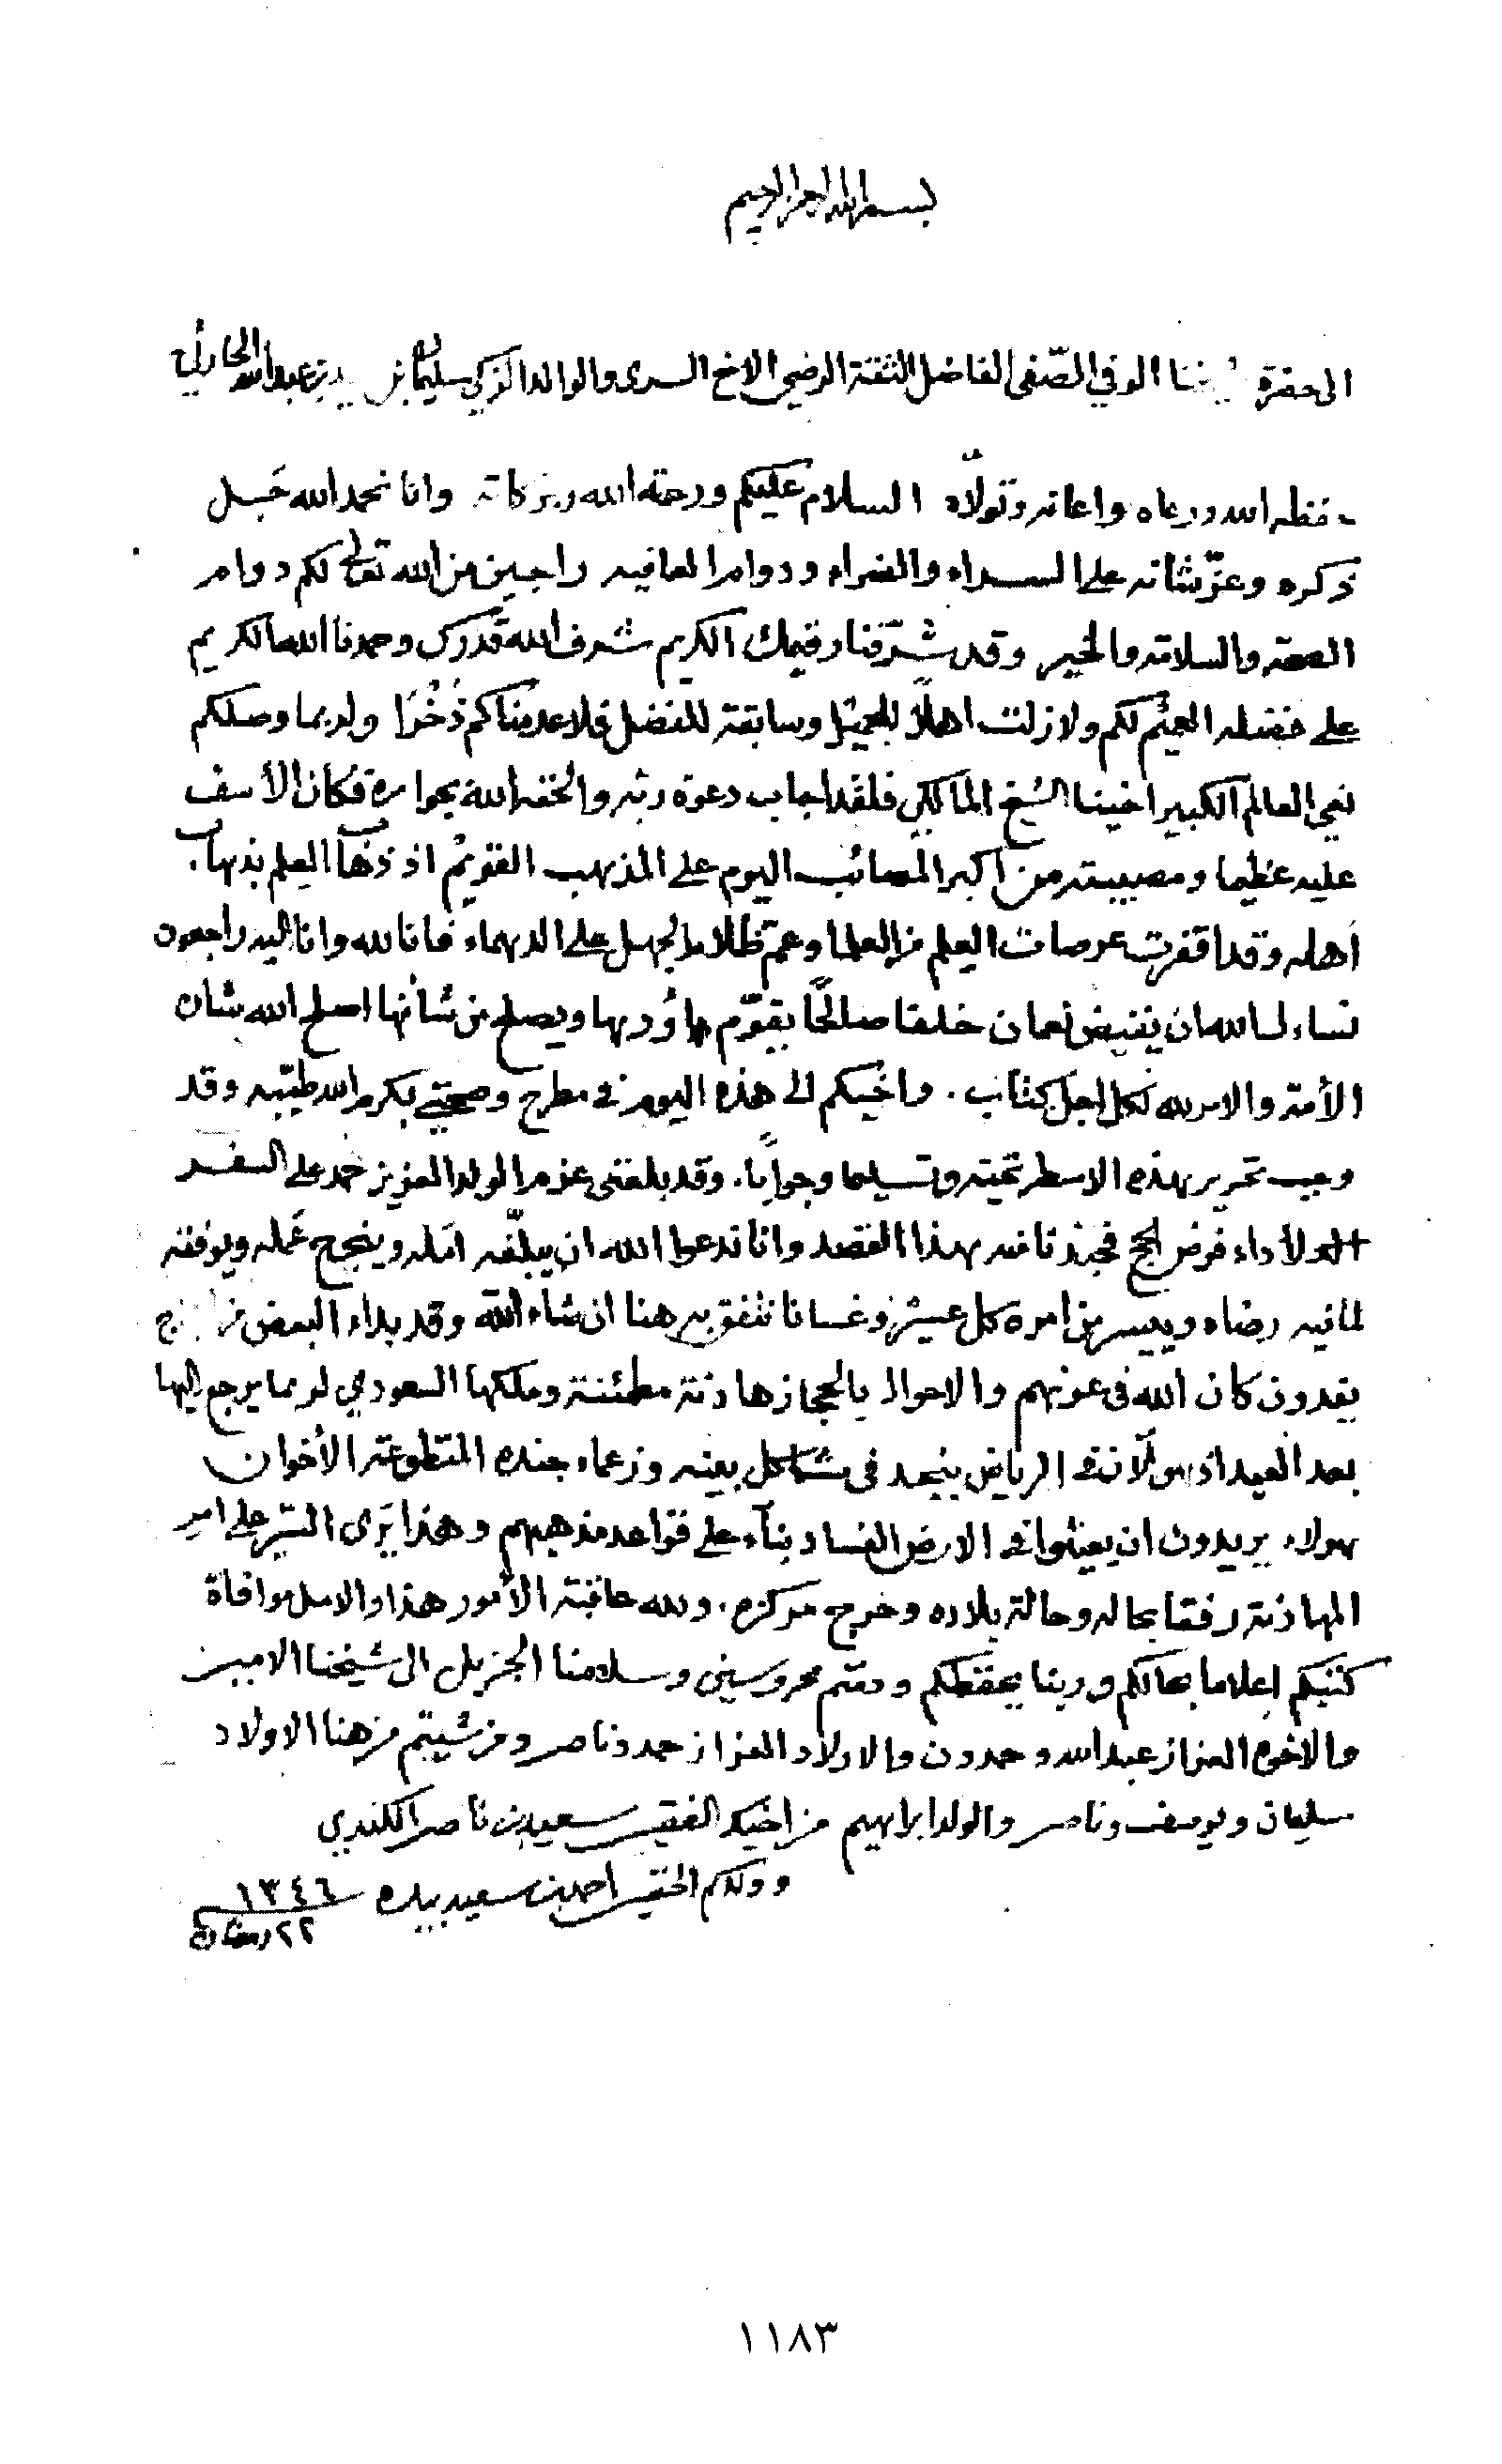 بسم الله الرحمن الرحيم
الى حضرة شيخنا الوفي الصّفي الفاضل الثقة الرضي الاخ السري والوالد الزكي سليمان بن عبدالله الحارثي
حفظه الله ورعاه واعانه وتولّاه السلام عليكم ورحمة الله وبركاته وانا نحمد الله جَل
ذكره وعزّ شانه على السراء والضراء ودوام العافيه راجين من الله تعالى لكم دوام
الصحة والسلامة والخير وقد شرّفنا رقيمك الكريم شرف الله قدرك وحمدنا الله الكريم
على فضله العميم لكم ولا زلت اهلًا للجميل وسابقة للفضل فلا عدمناكم ذُخْرًا ولربما وصلكم
نعي العالم الكبير اخينا الشيخ المالكي فلقد اجاب دعوة ربه والحقه الله بجواره فكان الأسف
عليه عظيما ومصيبته من اكبر المصائب اليوم على المذهب القويم اذ ذهاب العلم بذهاب
أهله وقد اقفرت عرصات العلم من العلما وعمّ ظلام الجهل على الدهماء فانا لله وانا اليه راجعون
نساءل الله ان يقيض لعمان خلفا صالحًا يقوّم اودها ويصلح من شأنها اصلح الله شان
الأمة والامر لله لكل اجل كتاب. واخيكم الى هذه اليوم في مطرح وصحتي بكرم الله طيّبه وقد
وجب تحرير هذه الاسطر تحية وتسليما وجوابًا. وقد بلغني عزم الولد العزيز حمد على السفر
لأداء فرض الحج فحبذنا منه بهذا القصد وانا ندعوا الله ان يبلّغه امَله وينجح عَمله ويوفقه
لما فيه رضاه وييسر من امره كل عسير وعسانا نتفق به هنا ان شاء الله وقد بداء البعض من
يفدون كان الله في عونهم والاحوال بالحجاز هادنة مطمئنة وملكها السعودي لربما يرجع اليها
بعد العيد اذ هو الآن في الرياض بنجد في مشاكل بينه وزعماء جنده المتطوعة الأخوان
هولاء يريدون ان يعيثوا في الارض الفساد بنآء على قواعد مذهبهم وهذا يَرى السير على امر
المهادنة رفقا بحاله وحالة بلاده وحرج مركزه. ولله عاقبة الأمور هذا والامل موافاة
كتبكم إعلاما بحالكم وربنا يحفظكم ودمتم محروسين وسلامنا الجزيل الى شيخنا الامير
والاخوة العزاز عبدالله وحمدون والاولاد العزاز حمد وناصر ومن شيتم من هنا الاولاد
سليمان ويوسف وناصر والولد ابراهيم من اخيك الفقير سعيد بن ناصر الكندي
وولدكم الحقير احمد بن سعيد بيده ١٣٤٦
٢٢ رمضان
١١٨٣